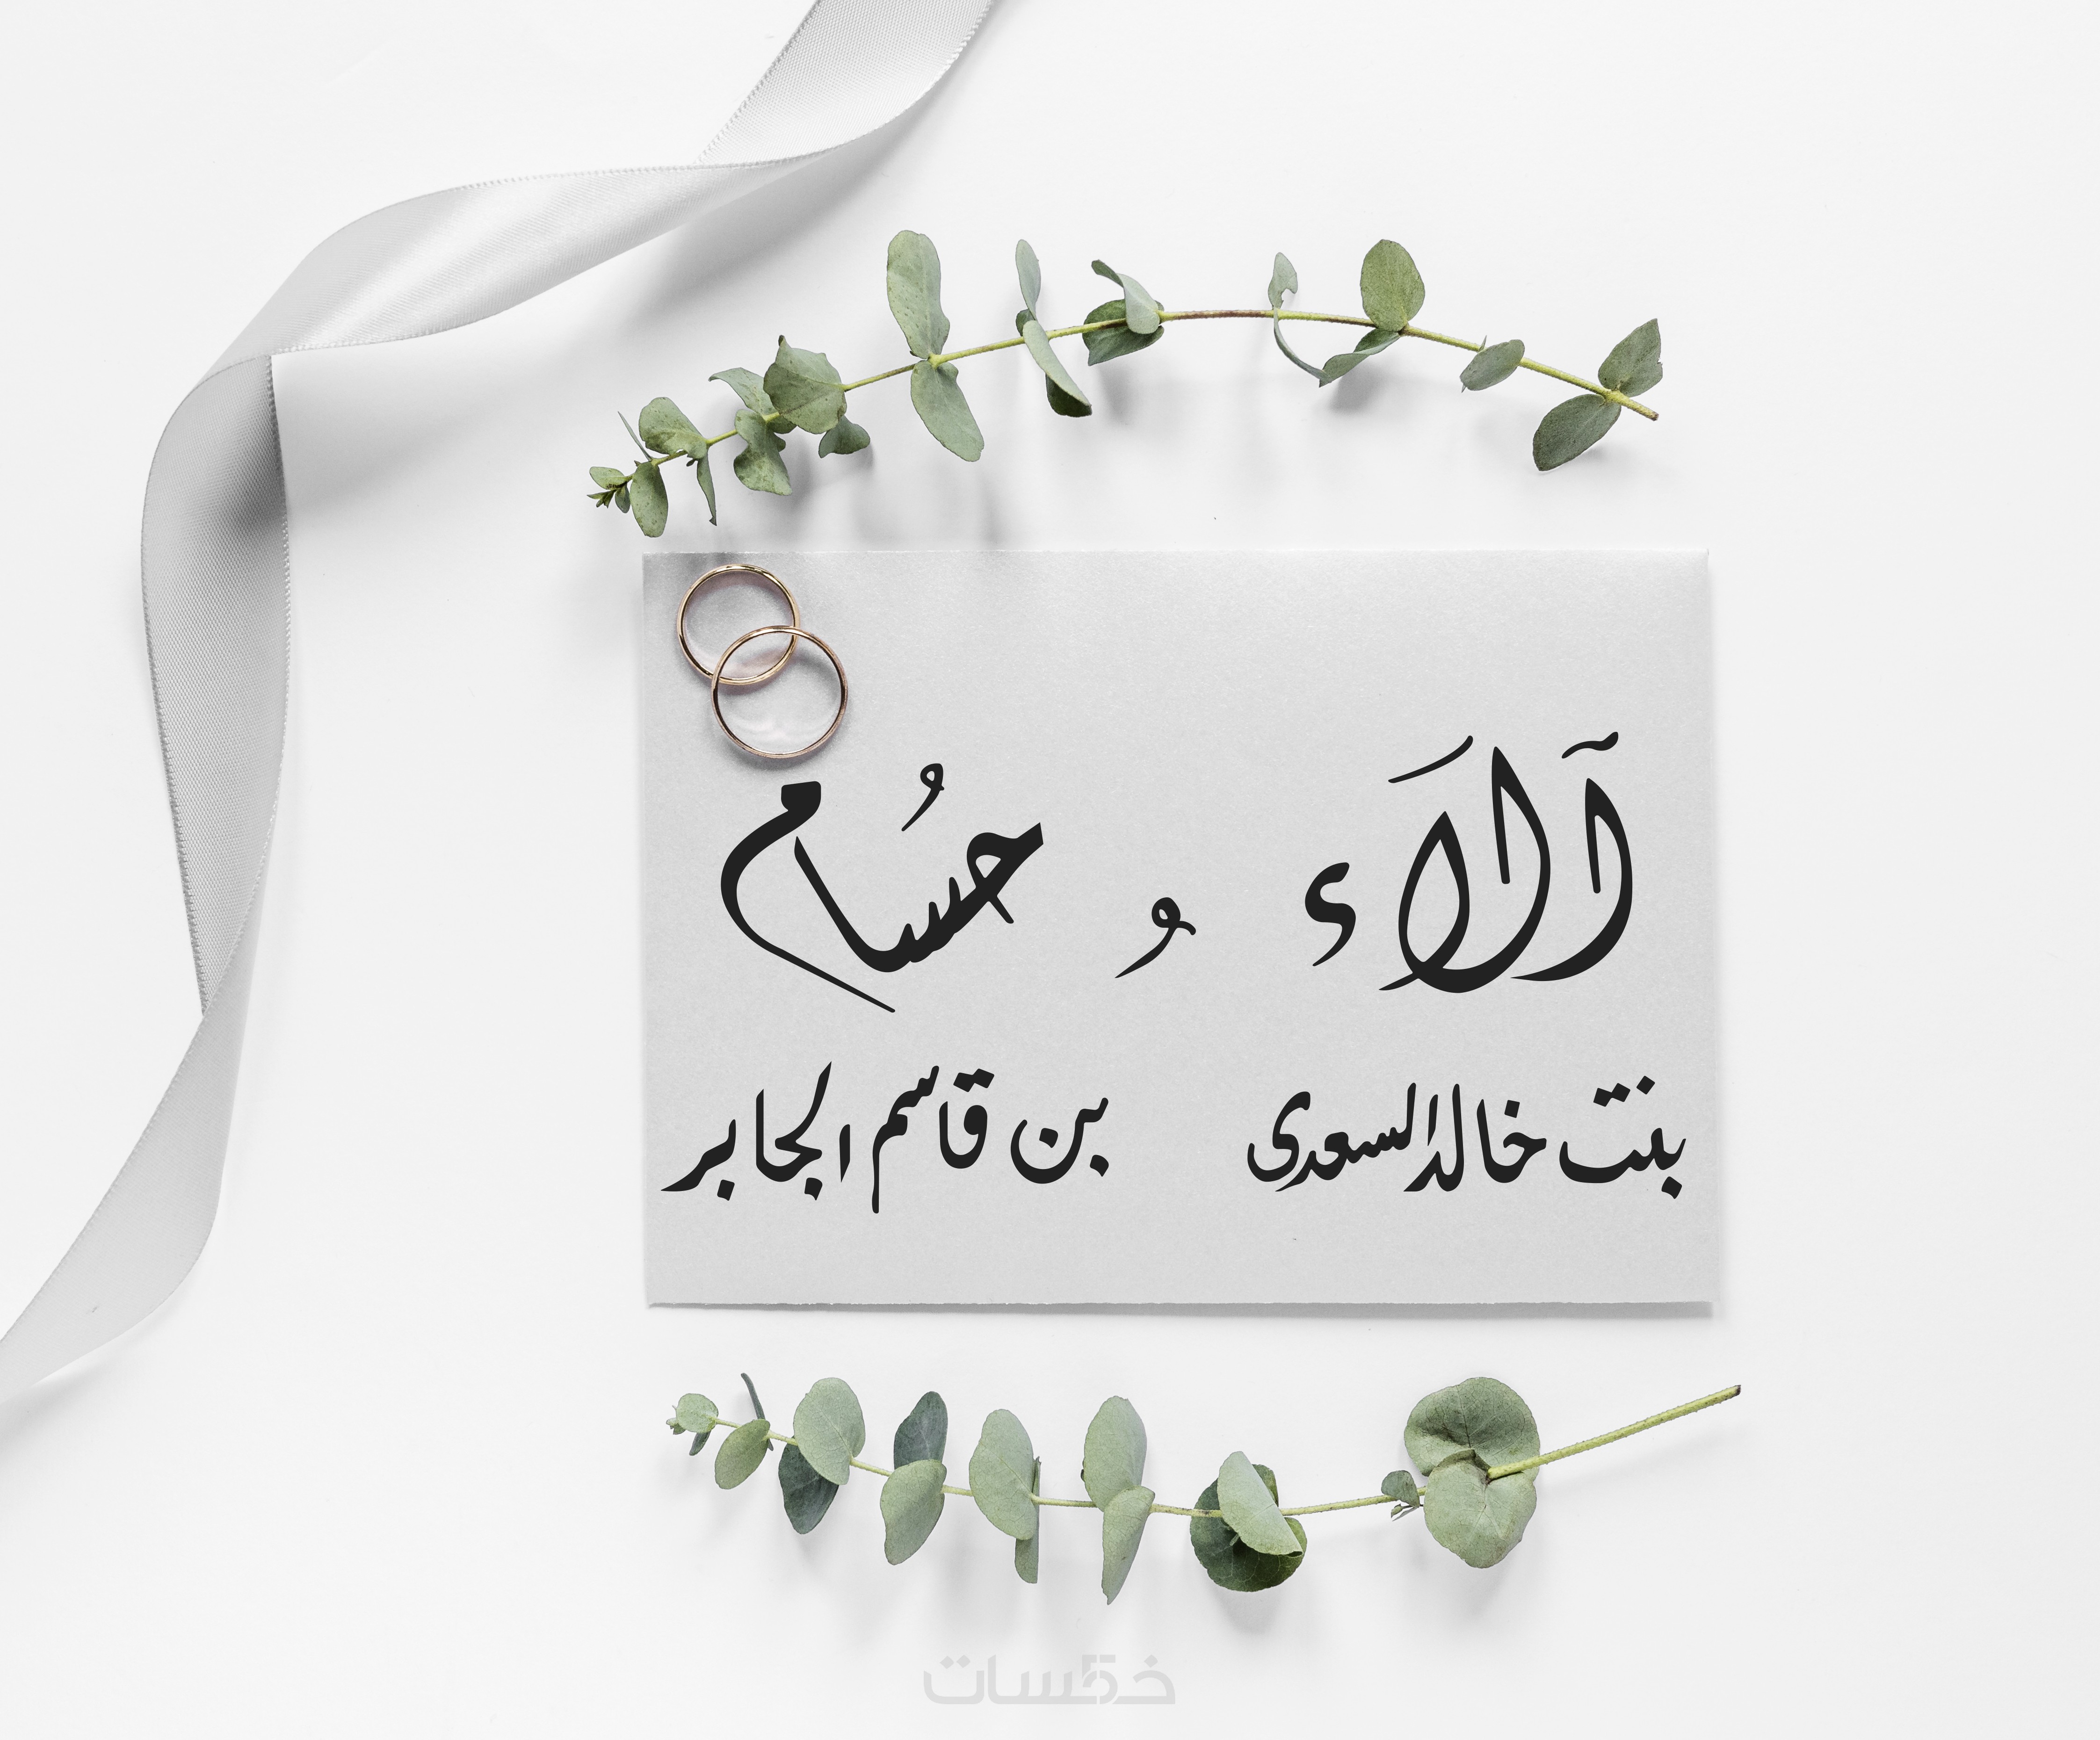 آلَاء و حُسام
بنت خالد السعدى بن قاسم الجابر
خمسات